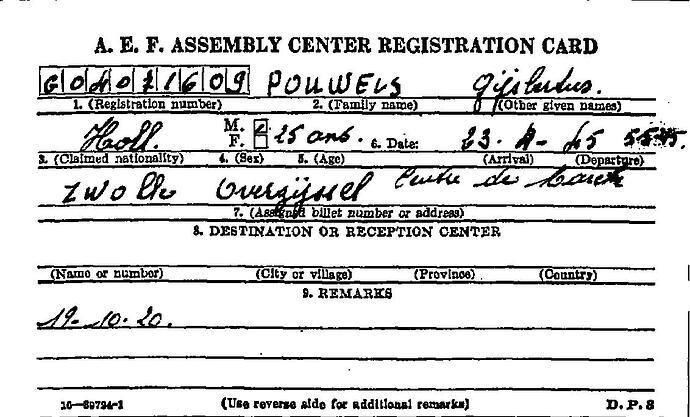 A. E. F. ASSEMBLY CENTER REGISTRATION CARD
G04071609 POUWELS Gijsbertus.
1. (Registration number) 2. (Family name) (Other given names)
Holl. M. F. 25 ans. 6. Date: 23-4-45
3. (Claimed nationality) 4. (Sex) 5. (Age) (Arrival) (Departure)
Zwolle Overijssel Centre de
7. (Assigned billet number or address)
8. DESTINATION OR RECEPTION CENTER
(Name or number) (City or village) (Province) (Country)
9. REMARKS
19-10-20.
16-39794-1 (Use reverse side for additional remarks) D.P.S